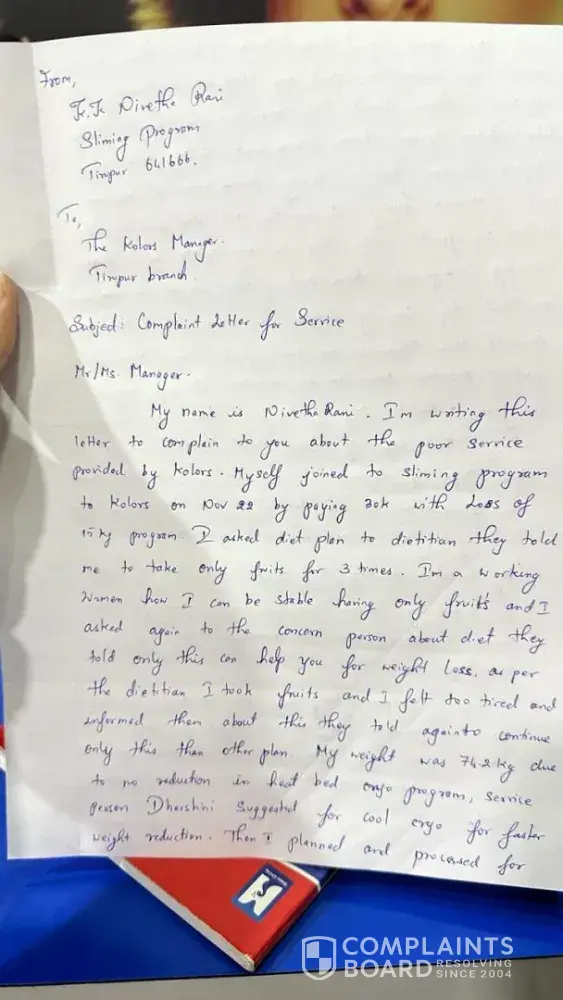 From,
Nivetha Rani
Sliming Program
Tirupur 641666.
To,
The Kolors Manager.
Tirupur branch.
Subjed: Complaint Letter for Service
Mr/Ms. Manager.
My name is Nivetha Rani. I'm writing this
letter to complain to you about the poor service
provided by Kolors. Myself joined to sliming program
to Kolors on Nov 22 by paying 30k with Loss of
15 kg program. I asked diet plan to dietitian they told
me to take only fruits for 3 times. I'm a working
Women how I can be stable having only fruits and I
asked again to the concern person about diet they
told only this can help you for weight loss, as per
the dietitian I took fruits and I felt too tired and
informed them about this they told againto continue
only this than other plan. My weight was 74.2 kg due
to no reduction in heat bed cryo program, service
person Dharshini Suggested for cool cryo for faster
weight reduction. Then I planned and processed for
COMPLAINTS
BOARD RESOLVING
SINCE 2004